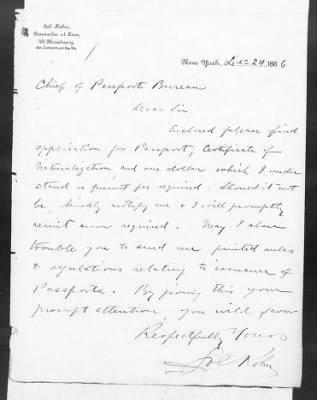 Sol. Kohn,
Counselor at Law,
Broadway
New York, Dec 24 1886
Chief of Passport Bureau
Dear Sir
Enclosed please find
application for Passport, Certificate of
Naturalization, and one dollar which I under
stand is present fee required. Should it not
be, kindly notify me & I will promptly
remit sum required. May I also
trouble you to send me printed rules
& regulations relating to issuance of
Passports. By giving this your
prompt attention, you will favor
Respectfully Yours
Sol Kohn